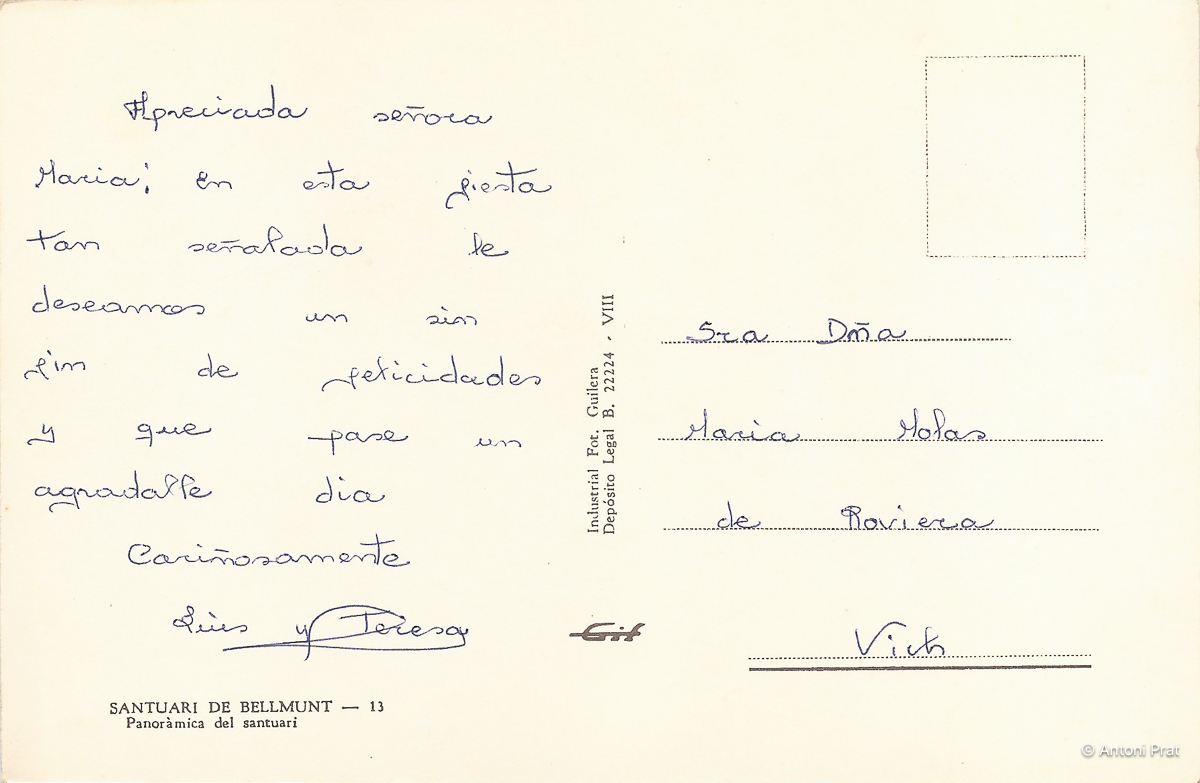 Apreciada señora
Maria; En esta fiesta
tan señalada le
deseamos un sin
fin de felicidades
y que pase un
agradable dia
Cariñosamente
Luis y Teresa
SANTUARI DE BELLMUNT — 13
Panoràmica del santuari
Industrial Fot. Guilera
Depósito Legal B. 22224 - VIII
Gif
Sra Dñа
Maria Molas
de Roviera
Vich
© Antoni Prat